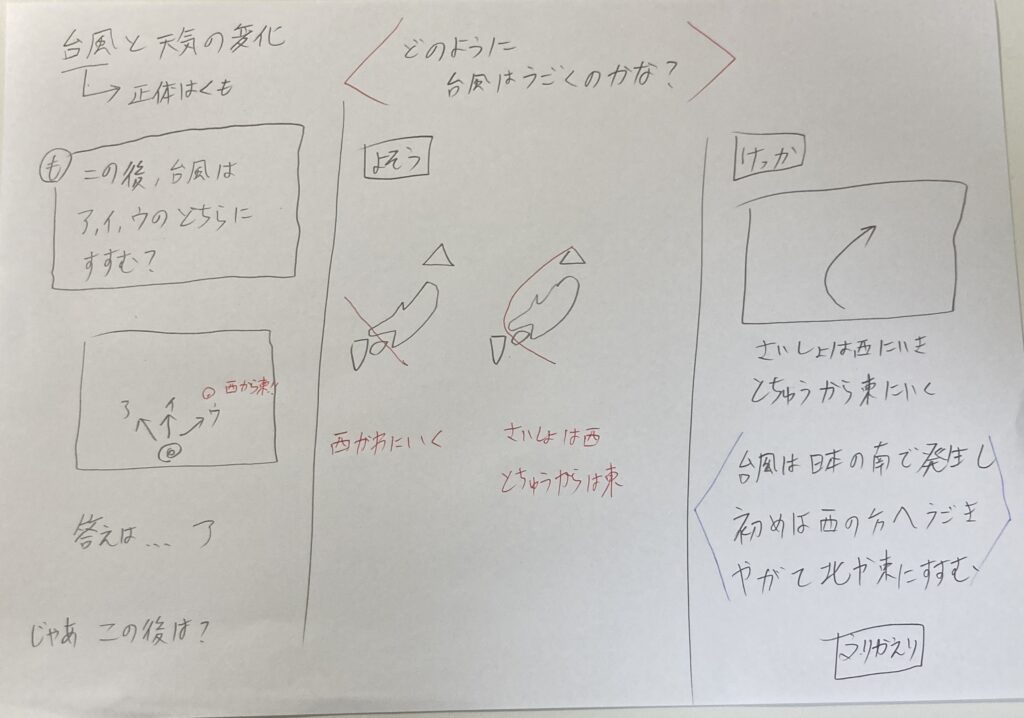 台風と天気の変化
→正体はくも
どのように
台風はうごくのかな?
も
この後,台風は
ア,イ,ウのどちらに
すすむ?
西から東
ア
イ
ウ
答えは... ア
じゃあ この後は?
よそう
西がわにいく
さいしょは西
とちゅうからは東
けっか
さいしょは西にいき
とちゅうから東にいく
台風は日本の南で発生し
初めは西の方へうごき
やがて北や東にすすむ
ふりかえり